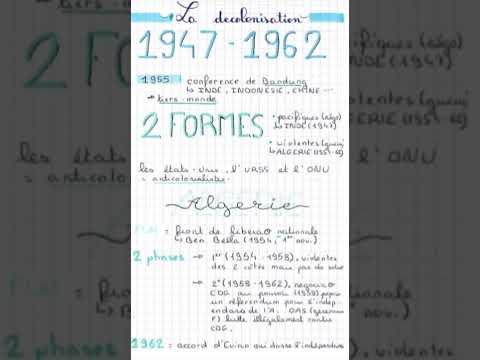 La decolonisation
1947-1962
1955 : conference de Bandung
↳ INDE, INDONESIE, CHINE ...
→ tiers-monde
2 FORMES
• pacifiques (négo)
↳ INDE (1947)
• violentes (guerre)
↳ ALGERIE (1954-62)
les états-unis, l'URSS et l'ONU
= anticolonialistes.
Algerie
FLN = front de libérat° nationale
↳ Ben Bella (1954, 1er nov.)
2 phases → 1er (1954-1958), violentes
des 2 côtés mais pas de
→ 2e (1958-1962), négociat°
CDG au pouvoir (1959) propose
un référendum pour l'indépen-
dance de l'A. OAS
F) lutte illégalement contre
CDG.
1962 = accord d'Evian qui donne l'indépendance